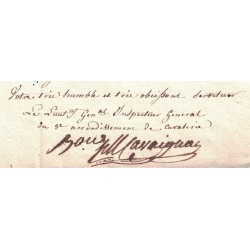 Votre très humble et très obéissant serviteur
Le Lieut.t Gén.al Inspecteur Général
du 2e arrondissement de cavalerie
Bon Cavaignac